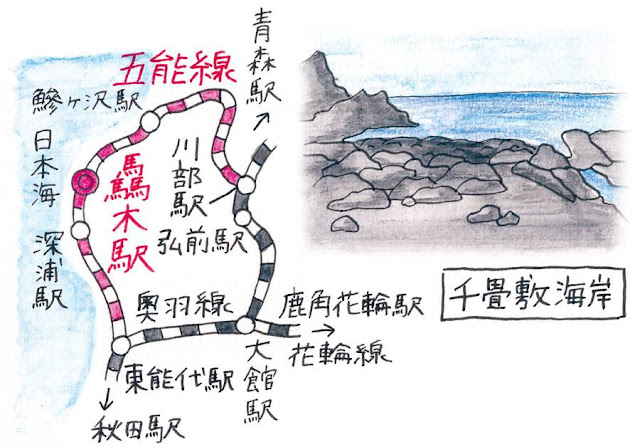 五能線
青森駅
鰺ヶ沢駅
日本海
驫木駅
川部駅
弘前駅
深浦駅
千畳敷海岸
奥羽線
鹿角花輪駅
花輪線
大館駅
東能代駅
秋田駅